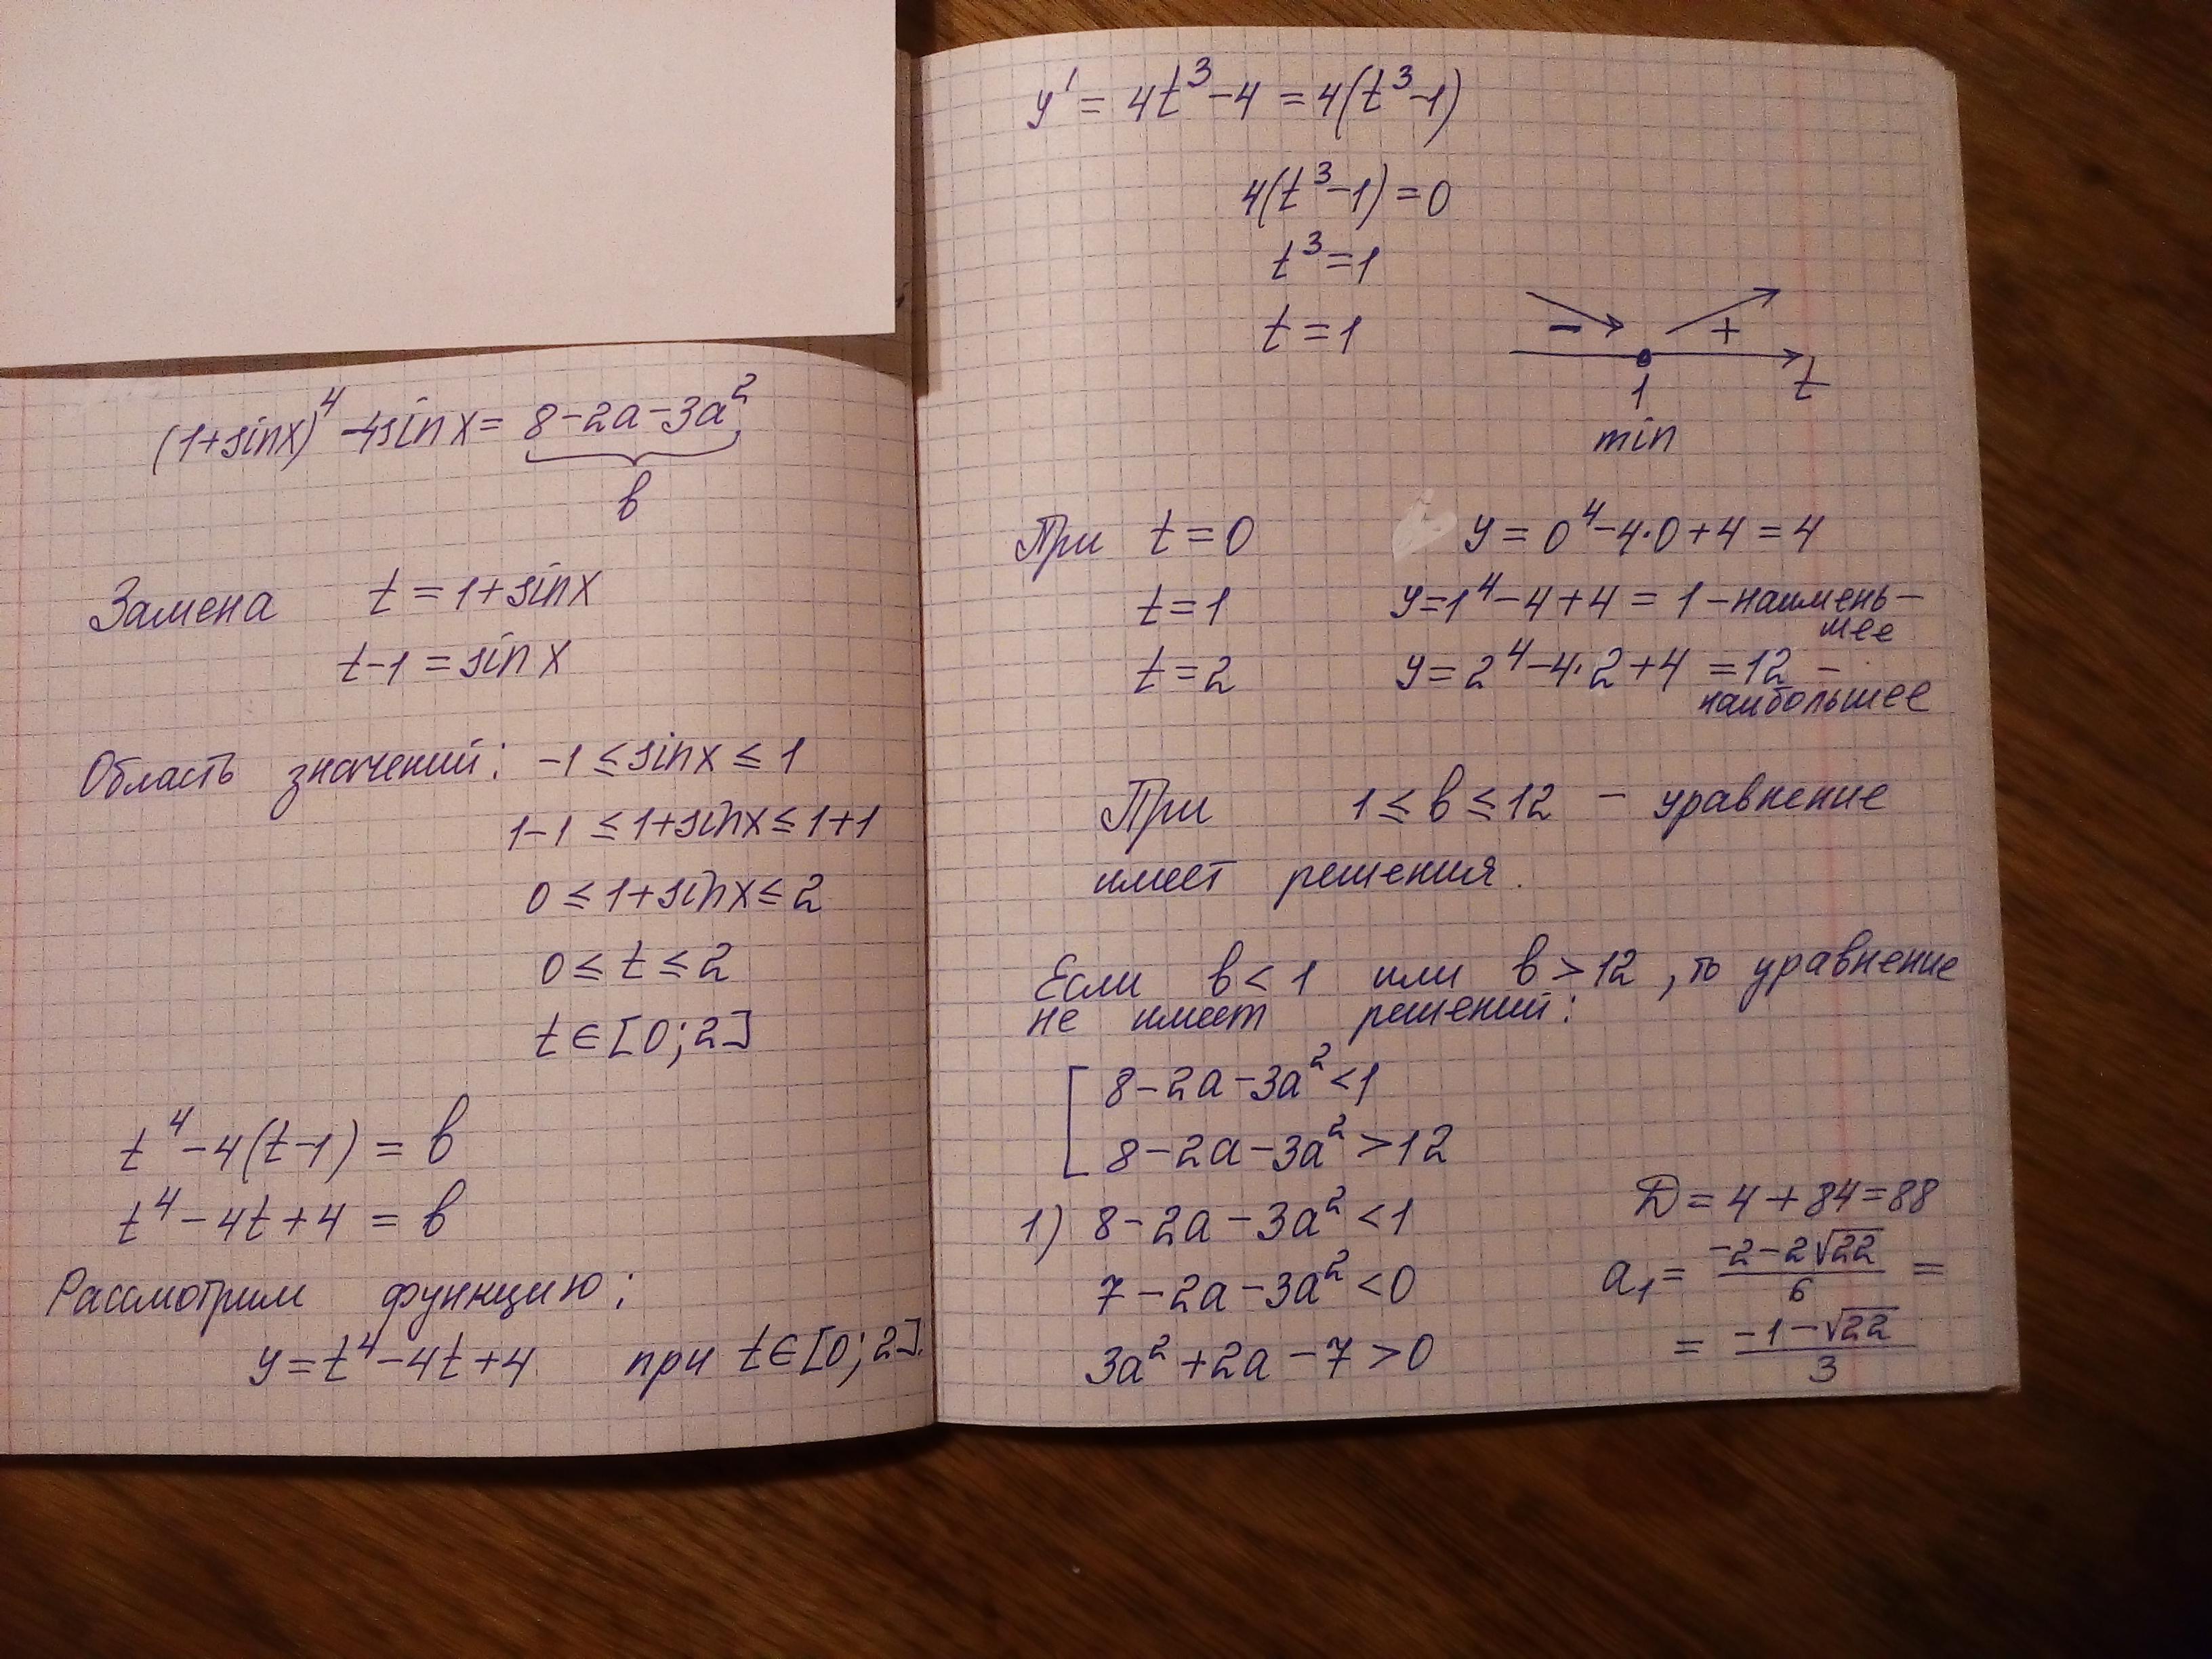 (1+sinx)⁴ -4sin x = 8-2a-3a²
в
Замена t = 1+sinx
t-1 = sin x
Область значений: -1 ≤ sinx ≤ 1
1-1 ≤ 1+sinx ≤ 1+1
0 ≤ 1+sinx ≤ 2
0 ≤ t ≤ 2
t ∈ [0; 2]
t⁴-4(t-1) = в
t⁴-4t+4 = в
Рассмотрим функцию:
y=t⁴-4t+4 при t∈[0; 2].
y' = 4t³-4 = 4(t³-1)
4(t³-1) = 0
t³=1
t = 1
- +
1 t
min
При t = 0 y = 0⁴-4·0+4 = 4
t = 1 y=1⁴-4+4 = 1 - наимень-
шее
t = 2 y= 2⁴-4·2+4 = 12 -
наибольшее
При 1 ≤ в ≤ 12 - уравнение
имеет решения.
Если в < 1 или в > 12, то уравнение
не имеет решений:
[ 8-2a-3a² < 1
8-2a-3a² > 12
1) 8-2a-3a² < 1 D = 4+84=88
7-2a-3a² < 0 a₁ = (-2-2√22)/6 =
3a²+2a-7 > 0 = (-1-√22)/3